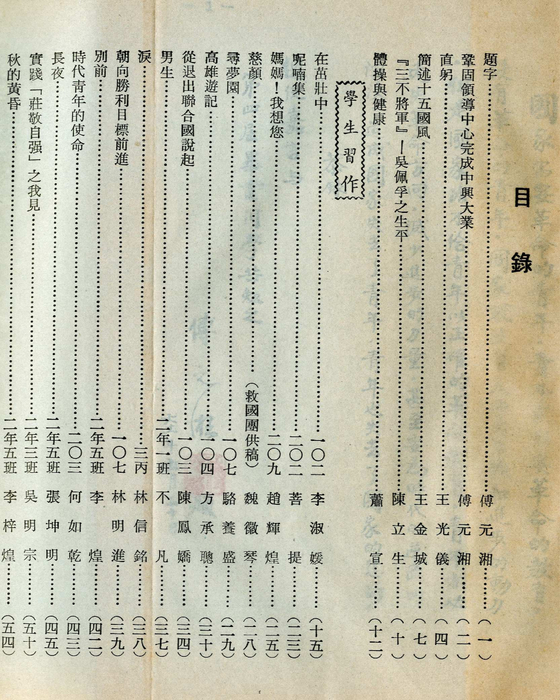 目錄
題字……傅元湘……(一)
鞏固領導中心完成中興大業……傅元湘……(二)
直躬……王光儀……(四)
簡述十五國風……王金城……(七)
『三不將軍』—吳佩孚之生平……陳立生……(十)
體操與健康……蕭宣……(十二)
學生習作
在茁壯中……一〇二 李淑媛……(十五)
呢喃集……二〇二 菩提……(二三)
媽媽!我想您……二〇九 趙輝煌……(二五)
慈顏……(救國團供稿) 魏徽琴……(二八)
尋夢園……一〇七 駱養盛……(二九)
高雄遊記……一〇四 方承聰……(三十)
從退出聯合國說起……一〇三 陳鳳嬌……(三四)
男生……二年一班 不凡……(三七)
淚……三丙 林信銘……(三八)
朝向勝利目標前進……一〇七 林明進……(三九)
別前……二年五班 李煌……(四二)
時代青年的使命……二〇三 何如乾……(四三)
長夜……二年五班 張坤明……(四五)
實踐「莊敬自强」之我見……二年三班 吳明宗……(五十)
秋的黃昏……二年五班 李梓煌……(五四)